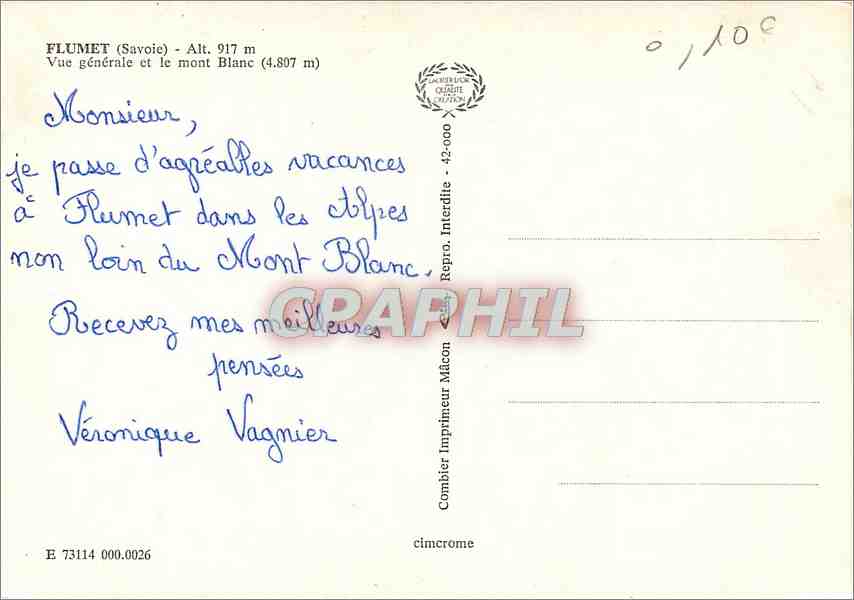 FLUMET (Savoie) - Alt. 917 m
Vue générale et le mont Blanc (4.807 m)
0,10€
Monsieur,
je passe d'agréables vacances
à Flumet dans les Alpes
non loin du Mont Blanc.
Recevez mes meilleures
pensées
Véronique Vagnier
E 73114 000.0026
LAURIER D'OR
QUALITÉ
CRÉATION
Combier Imprimeur Mâcon
Repro. Interdite - 42-000
cimcrome
CPAPHIL